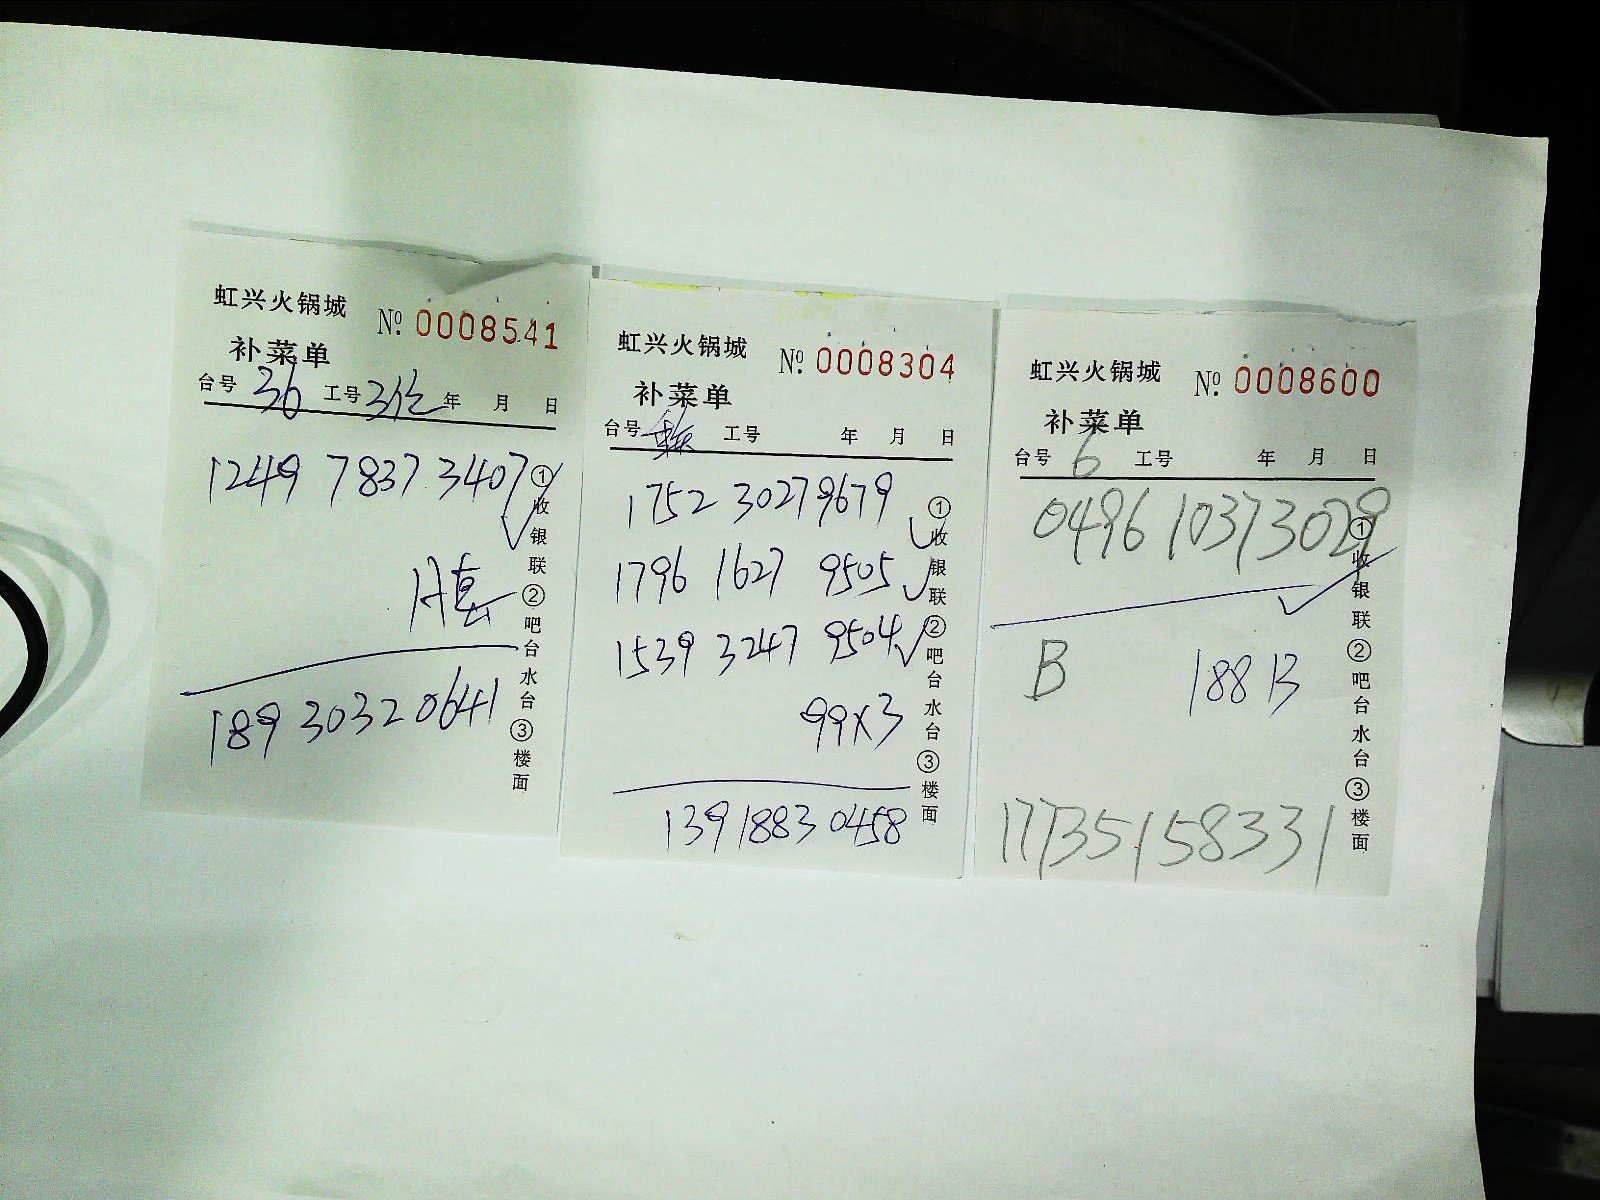 虹兴火锅城
№ 0008541
补菜单
台号 36 工号 3位 年 月 日
1249 7837 3407
①收银联②吧台水台③楼面
189 3032 0641
虹兴火锅城
№ 0008304
补菜单
台号 工号 年 月 日
1752 3027 9679
1796 1627 9505
1539 3247 9504
99x3
①收银联②吧台水台③楼面
139 1883 0458
虹兴火锅城
№ 0008600
补菜单
台号 6 工号 年 月 日
0496 1037 3029
B 188 B
①收银联②吧台水台③楼面
17735158331